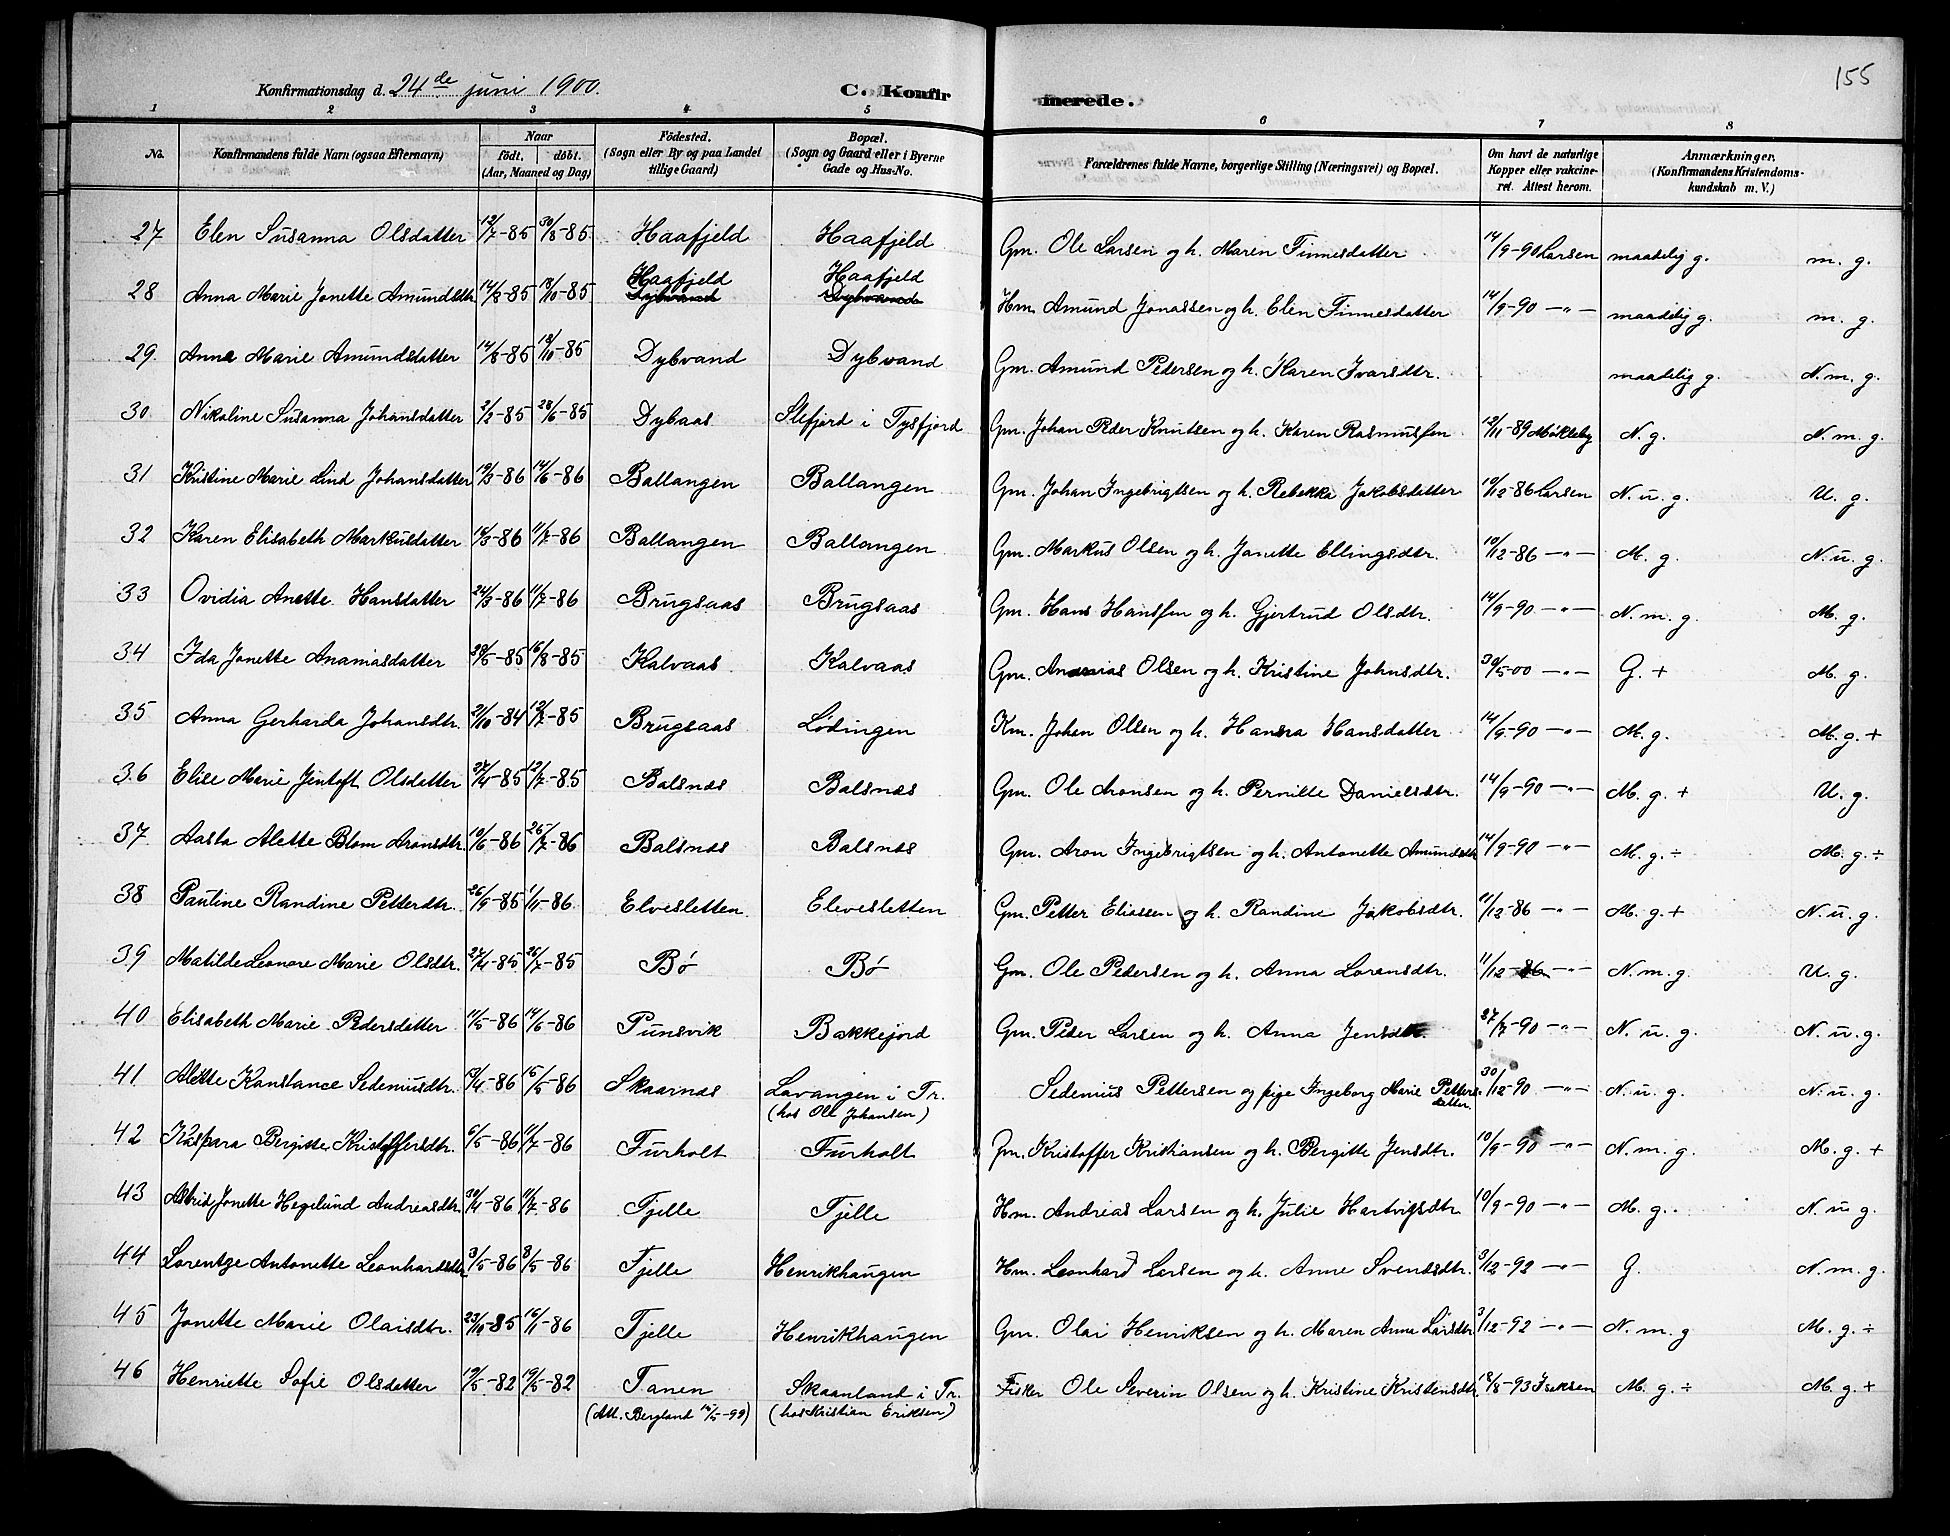 155
Konfirmationsdag d. 24de juni 1900. C. Konfirmerede.
1 2 3 4 5 6 7 8
No. Konfirmandens fulde Navn (ogsaa Efternavn) Naar født. døbt. (Aar, Maaned og Dag) Fødested. (Sogn eller By og paa Landet tillige Gaard) Bopæl. (Sogn og Gaard eller i Byerne Gade og Hus-No. Forældrenes fulde Navne, borgerlige Stilling (Næringsvei) og Bopæl. Om havt de naturlige Kopper eller vakcineret. Attest herom. Anmærkninger. (Konfirmandens Kristendomskundskab m. V.)
27 Elen Susanna Olsdatter 12/7-85 30/8-85 Haafjeld Haafjeld Gm. Ole Larsen og h. Maren Finnesdatter 14/9-90 Larsen maadelig g. m. g.
28 Anna Marie Jonette Amundsdtr 14/8-85 18/10-85 Haafjeld Dybvand Haafjeld Dybvand Hm. Amund Jonassen og h. Elen Finnesdatter 14/9-90 -"- maadelig g. m. g.
29. Anna Marie Amundsdatter 14/8-85 18/10-85 Dybvand Dybvand Gm. Amund Pedersen og h. Karen Ivarsdtr. maadelig g. N. m. g.
30 Nikoline Susanna Johansdatter 2/2-85 28/6-85 Dybaas Stefjord i Tysfjord Gm. Johan Peder Knutsen og h. Karen Rasmussen 12/11-89 Møkleby N. g. N. m. g.
31 Kristine Marie Lind Johansdatter 19/3-86 14/6-86 Ballangen Ballangen Gm. Johan Ingebrigtsen og h. Rebekka Jakobsdatter 10/12-86 Larsen N. u. g. U. g.
32 Karen Elisabeth Markusdatter 14/3-86 11/7-86 Ballangen Ballangen Gm. Markus Olsen og h. Janette Ellingsdtr. 10/12-86 -"- M. g. N. u. g.
33 Ovidia Anette Hansdatter 24/3-86 11/7-86 Brugsaas Brugsaas Gm. Hans Hanssen og h. Gjertrud Olsdtr. 14/9-90 -"- N. m. g. M. g.
34 Ida Jonette Ananiasdatter 28/5-85 16/8-85 Kalvaas Kalvaas Gm. Ananias Olsen og h. Kristine Johnsdtr. 30/5-00 -"- G. + M. g.
35 Anna Gerharda Johansdtr. 21/10-84 12/7-85 Brugsaas Lødingen Km. Johan Olsen og h. Hansa Hansdatter 14/9-90 -"- M. g. M. g. +
36 Elise Marie Jentoft Olsdatter 27/4-85 12/7-85 Balsnæs Balsnæs Gm. Ole Aronsen og h. Pernille Danielsdtr. 14/9-90 -"- M. g. + U. g.
37 Aasta Alette Blom Aronsdtr. 10/6-86 25/7-86 Balsnæs Balsnæs Gm. Aron Ingebrigtsen og h. Antonette Amundsdtr 14/9-90 -"- M. g. ÷ M. g. ÷
38 Pauline Randine Petterdtr. 26/9-85 1/11-86 Elvesletten Elevesletten Gm. Petter Eliassen og h. Randine Jakobsdtr. 11/12-86 -"- M. g. + N. u. g.
39 Matilde Leonore Marie Olsdtr. 27/4-85 26/7-85 Bø Bø Gm. Ole Pedersen og h. Anna Lorensdtr. 11/12-86 -"- N. m. g. U. g.
40 Elisabeth Marie Pedersdatter 11/5-86 14/6-86 Punsvik Bakkejord Gm. Peder Larsen og h. Anna Jensdtr. 27/7-90 -"- N. u. g. N. u. g.
41 Alette Konstance Sedeniusdtr. 13/4-86 15/5-86 Skaarnæs Lavangen i Tr. Sedenius Pettersen og pige Ingeborg Marie Petters- 30/12-90 -"- N. u. g. N. u. g.
(hos Ole Johansen) datter
42 Kaspara Bergitte Kristoffersdtr. 6/5-86 11/7-86 Furholt Furholt Gm. Kristoffer Kristiansen og h. Bergitte Jensdtr. 10/9-90 -"- N. m. g. M. g. +
43 Astrid Jonette Hegelund Andreasdtr. 30/4-86 11/7-86 Fjelle Fjelle Hm. Andreas Larsen og h. Julie Hartvigsdtr. 10/9-90 -"- M. g. N. u. g.
44 Lorentze Antonette Leonhardsdtr. 3/5-86 8/5-86 Fjelle Henrikhaugen Hm. Leonhard Larsen og h. Anne Svendsdtr. 3/12-92 -"- G. N. m. g.
45 Jonette Marie Olaisdtr. 23/10-85 16/1-86 Fjelle Henrikhaugen Gm. Olai Henriksen og h. Maren Anna Larsdtr 3/12-92 -"- N. m. g M. g. ÷
46 Henriette Sofie Olsdatter 19/5-82 19/5-82 Tanen Skaanland i Tr. Fisker Ole Severin Olsen og h. Kristine Kristensdtr. 18/8-93 Isaksen M. g. ÷ M. g. +
(Att. Bergland 14/5-99) (hos Kristian Eriksen)